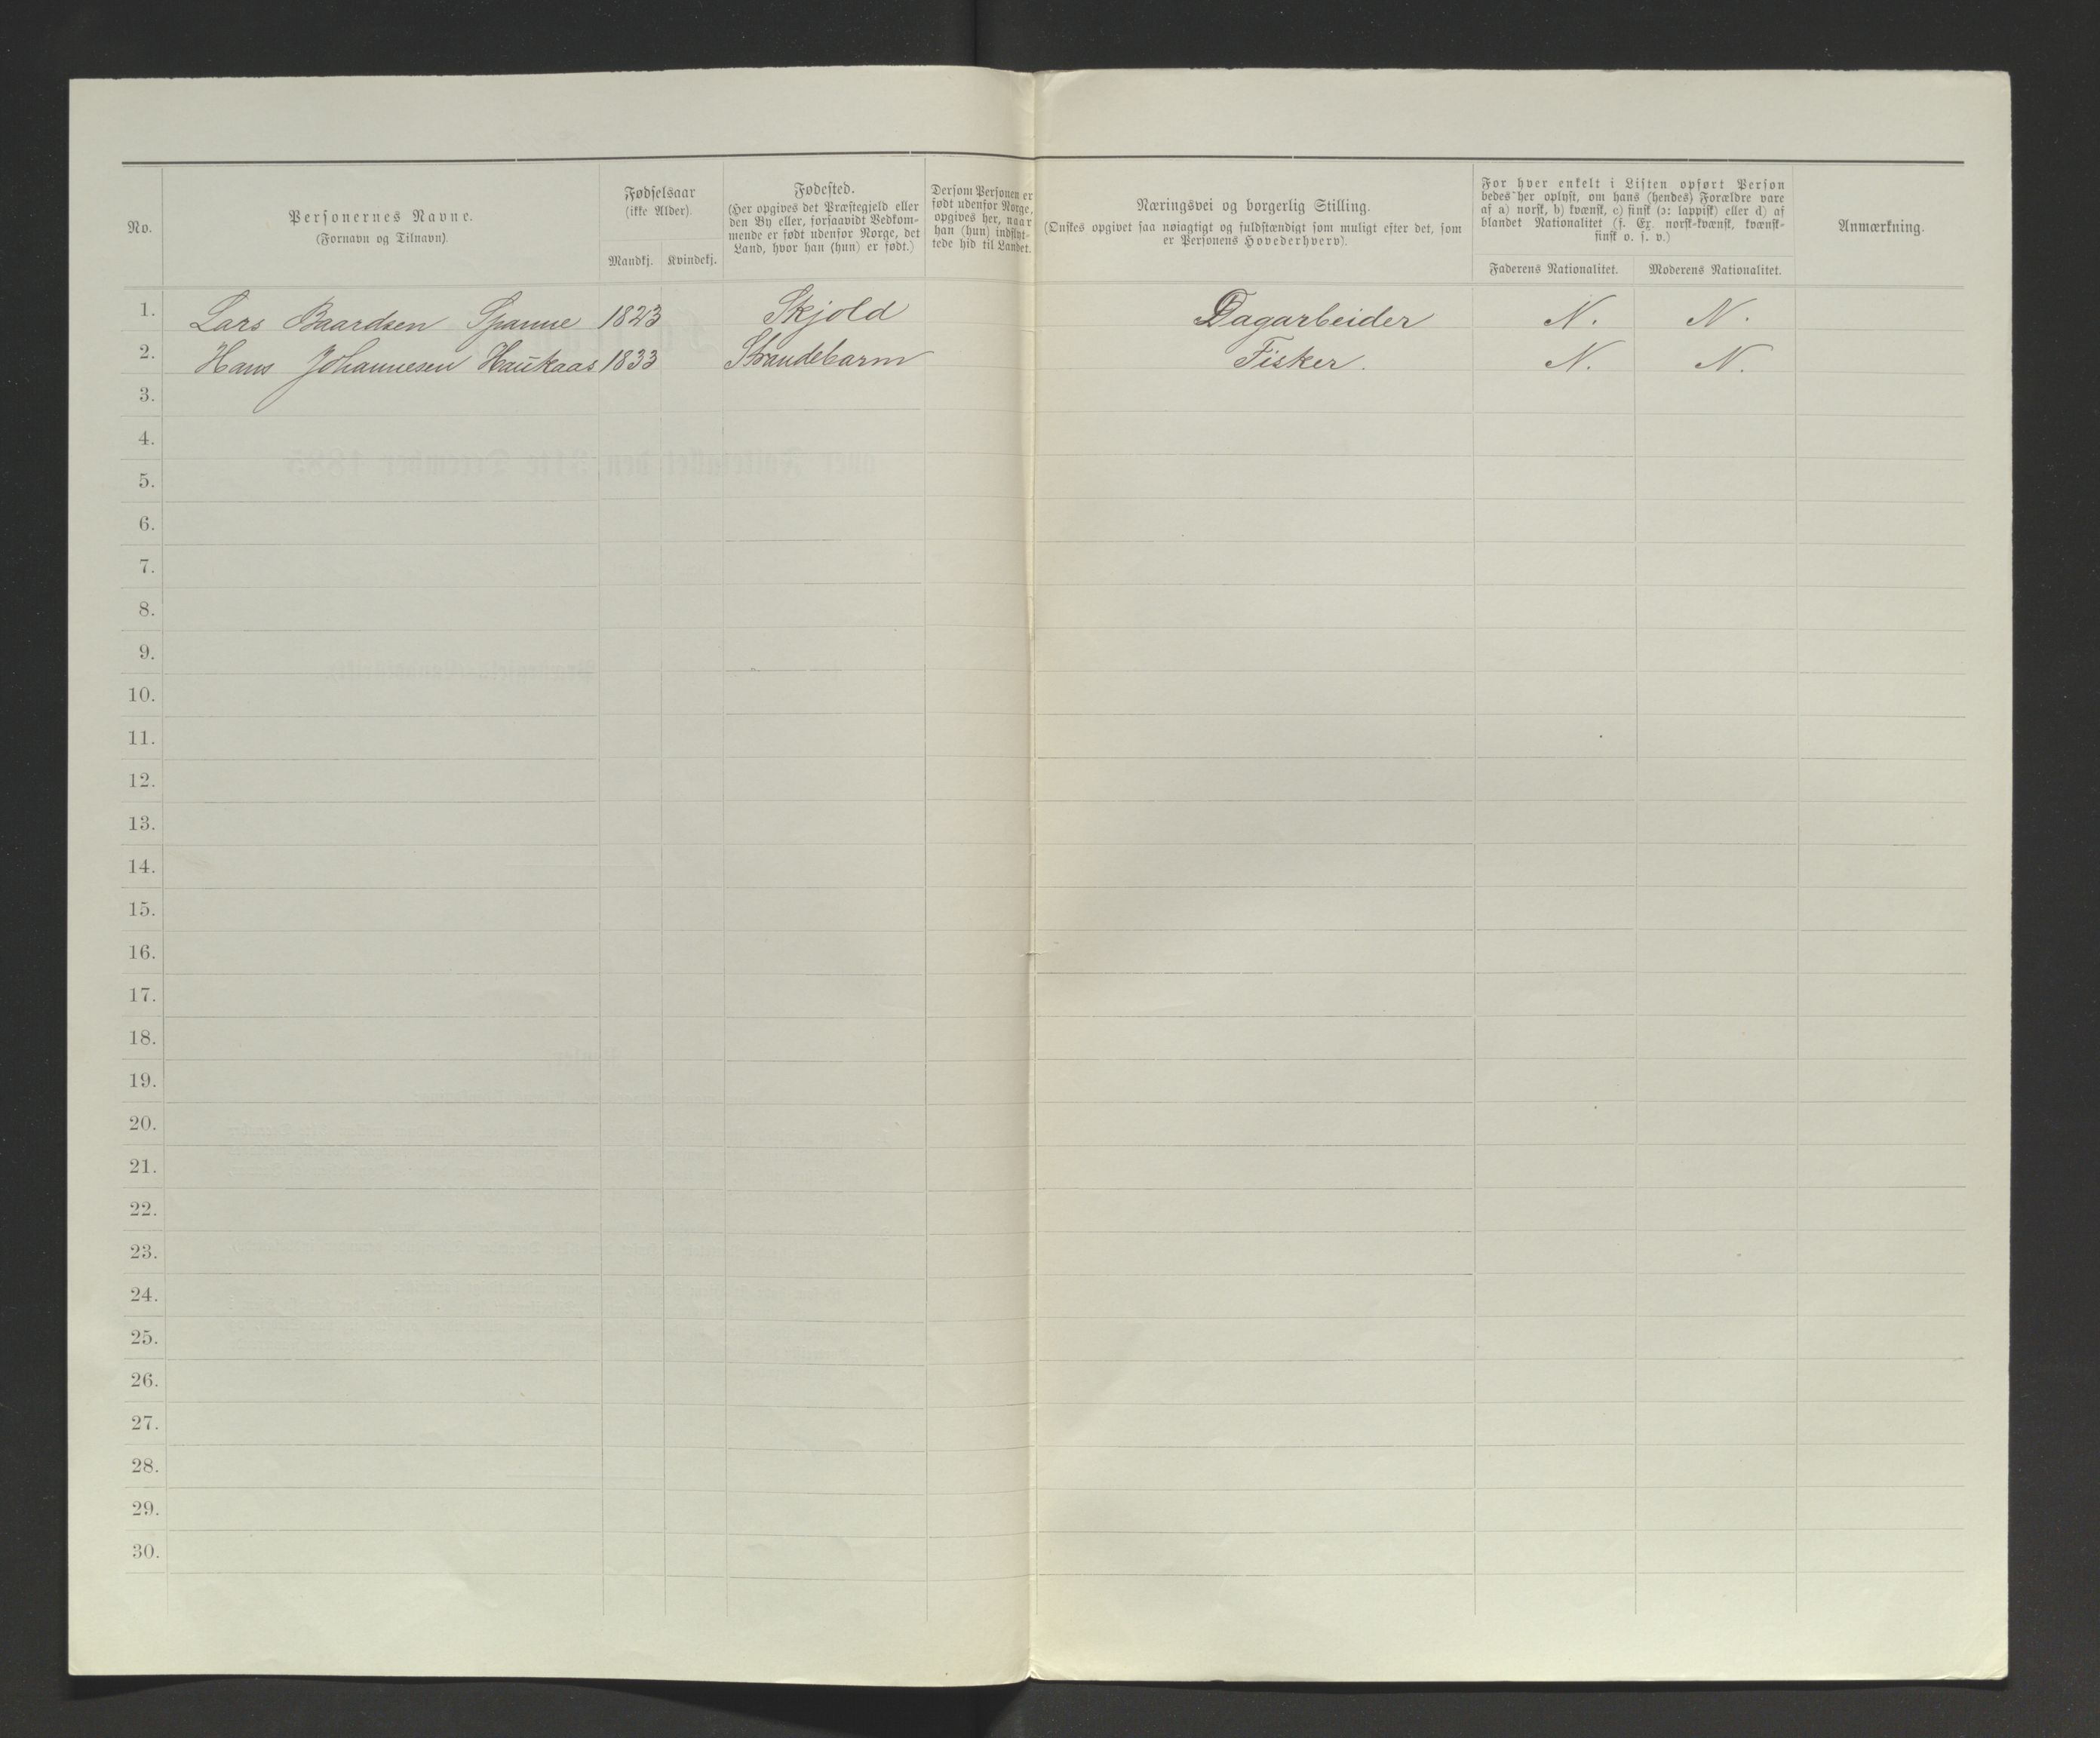 No.
Personernes Navne.
(Fornavn og Tilnavn).
Fødselsaar
(ikke Alder).
Mandkj. Kvindekj.
Fødested.
(Her opgives det Præstegjeld eller
den By eller, forsaavidt Vedkom-
mende er født udenfor Norge, det
Land, hvor han (hun) er født.)
Dersom Personen er
født udenfor Norge,
opgives her, naar
han (hun) indflyt-
tede hid til Landet.
Næringsvei og borgerlig Stilling.
(Ønskes opgivet saa nøiagtigt og fuldstændigt som muligt efter det, som
er Personens Hovederhverv).
For hver enkelt i Listen opført Person
bedes her oplyst, om hans (hendes) Forældre vare
af a) norsk, b) kvænsk, c) finsk (ɔ: lappisk) eller d) af
blandet Nationalitet (f. Ex. norsk-kvænsk, kvænsk-
finsk o. s. v.)
Faderens Nationalitet. Moderens Nationalitet.
Anmærkning.
1. Lars Baardsen Spanne 1823 Skjold Dagarbeider N. N.
2. Hans Johannesen Haukaas 1833 Strandebarm Fisker. N. N.
3.
4.
5.
6.
7.
8.
9.
10.
11.
12.
13.
14.
15.
16.
17.
18.
19.
20.
21.
22.
23.
24.
25.
26.
27.
28.
29.
30.